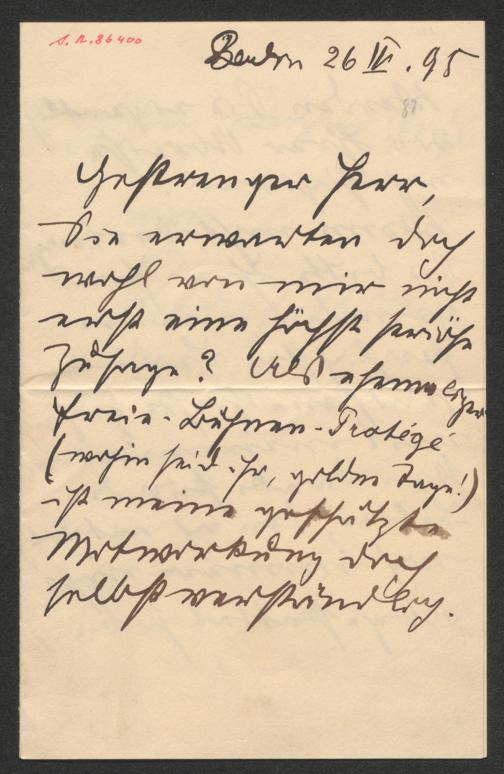 J. N. 86400
Berlin 26 IV. 95
Gestrenger Herr,
Sie erwarten doch
wohl von mir nicht
erst eine höchst seriöse
Zusage? Als ehemaliger
Freie-Bühnen-Protégé
(wohin seid Ihr, goldne Tage!)
ist meine geschätzte
Mitwirkung doch
selbstverständlich.